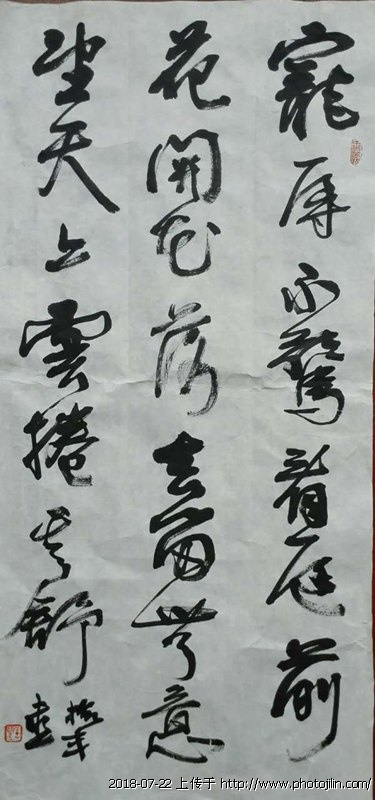 寵辱不驚看庭前
花開花落去留無意
望天上雲捲云舒
2018-07-22 上传于 http://www.photojilin.com/